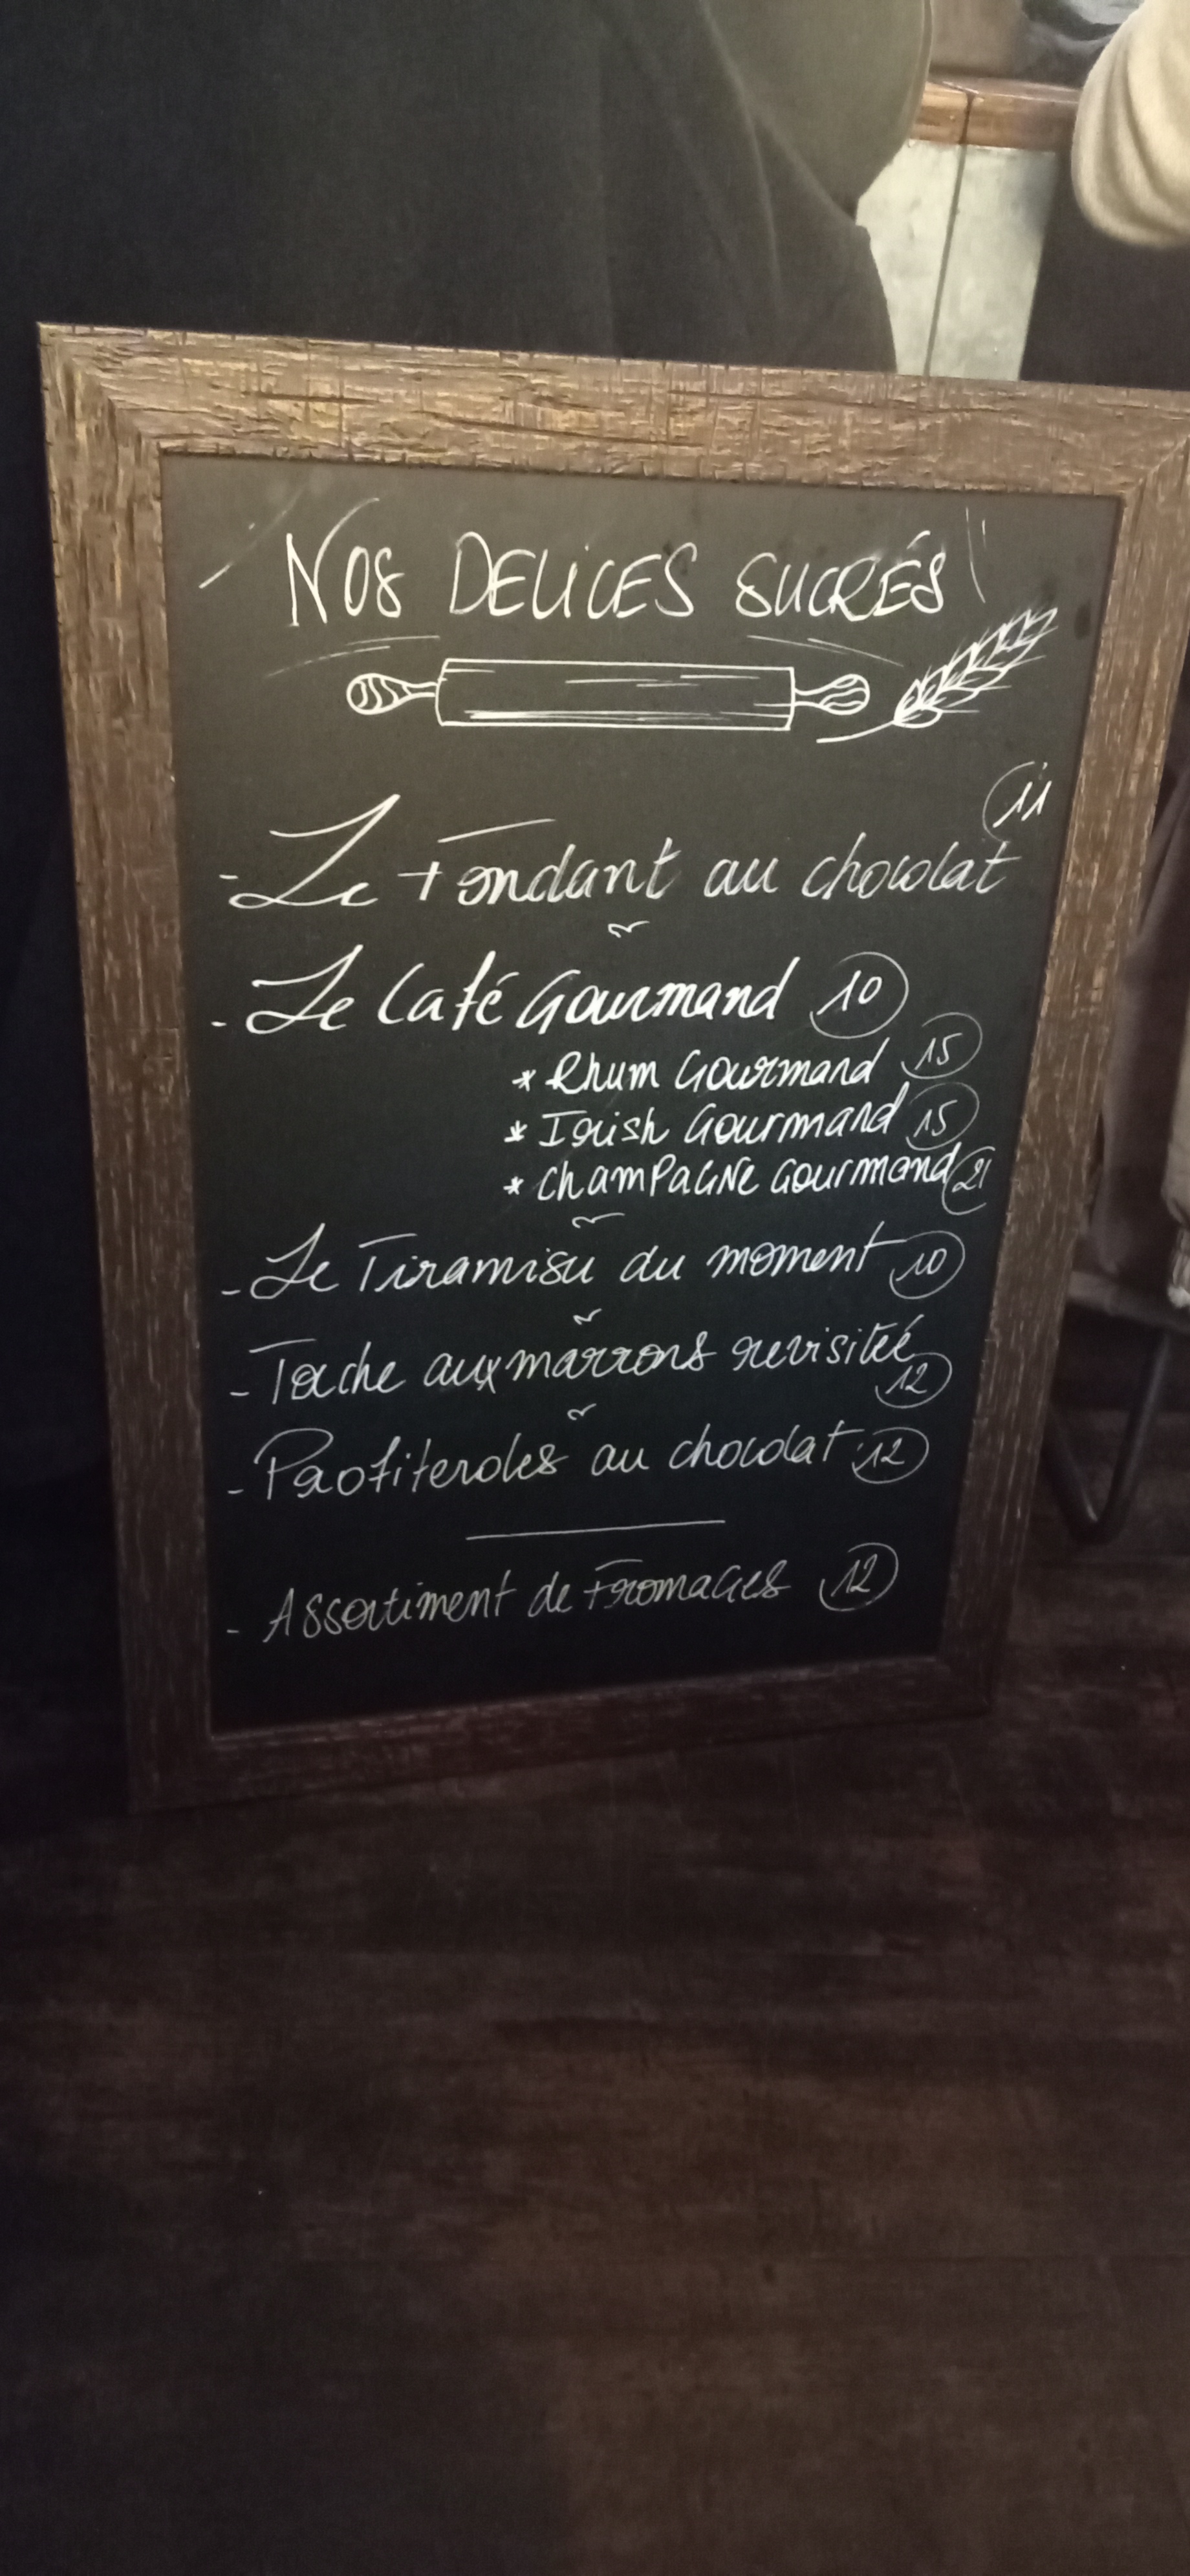 NOS DELICES SUCRÉS
11
- Le Fondant au chocolat
- Le Café Gourmand 10
* Rhum Gourmand 15
* Irish Gourmand 15
* Champagne Gourmand 21
- Le Tiramisu du moment 10
- Torche aux marrons revisiteé
12
- Profiteroles au chocolat 12
- Assortiment de Fromages 12